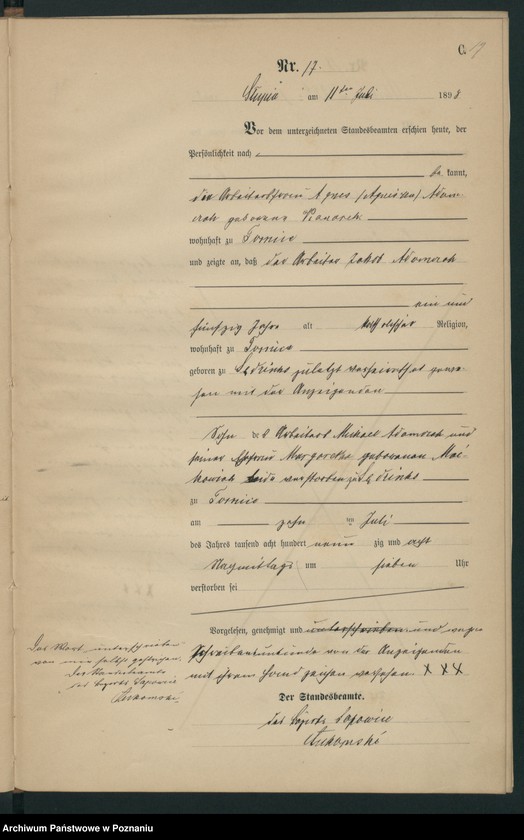 C. 17
Nr. 17.
am 11ten Juli 1898
Vor dem unterzeichneten Standesbeamten erschien heute, der
Persönlichkeit nach
be kannt,
die Arbeiterfrau Agnes (Agnieszka) Adam-
czak geborene
wohnhaft zu Tomice
und zeigte an, daß der Arbeiter Jakob Adamczak
ein und
fünfzig Jahre alt katholischer Religion,
wohnhaft zu Tomice
geboren zu zuletzt verheirathet gewe-
sen mit der Anzeigenden
Sohn des Arbeiters Michael Adamczak und
seiner Ehefrau Margaretha geborenen
beide verstorben zu
zu Tomice
am zehn ten Juli
des Jahres tausend acht hundert neun zig und acht
Nachmittags um sieben Uhr
verstorben sei
Vorgelesen, genehmigt und unterschrieben und wegen
Schreibensunkunde von der Anzeigenden
mit ihrem Handzeichen versehen. X X X
Das Wort unterschrieben
von mir selbst gestrichen.
Der Standesbeamte
Der Standesbeamte.
Archiwum Państwowe w Poznaniu